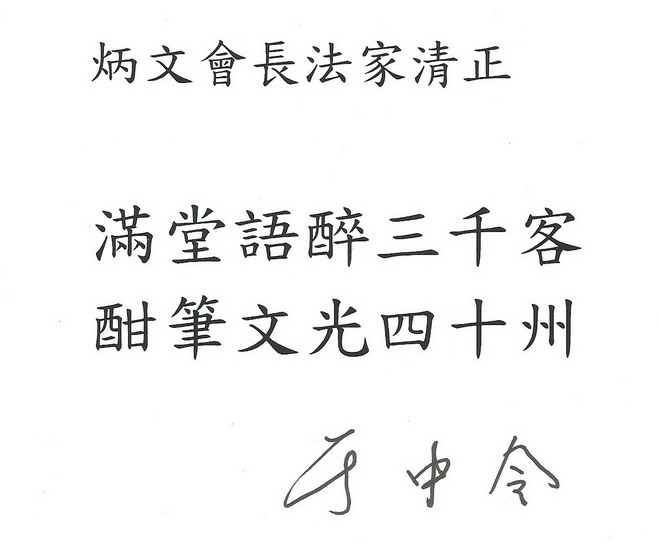 炳文會長法家清正
滿堂語醉三千客
酣筆文光四十州
于中令